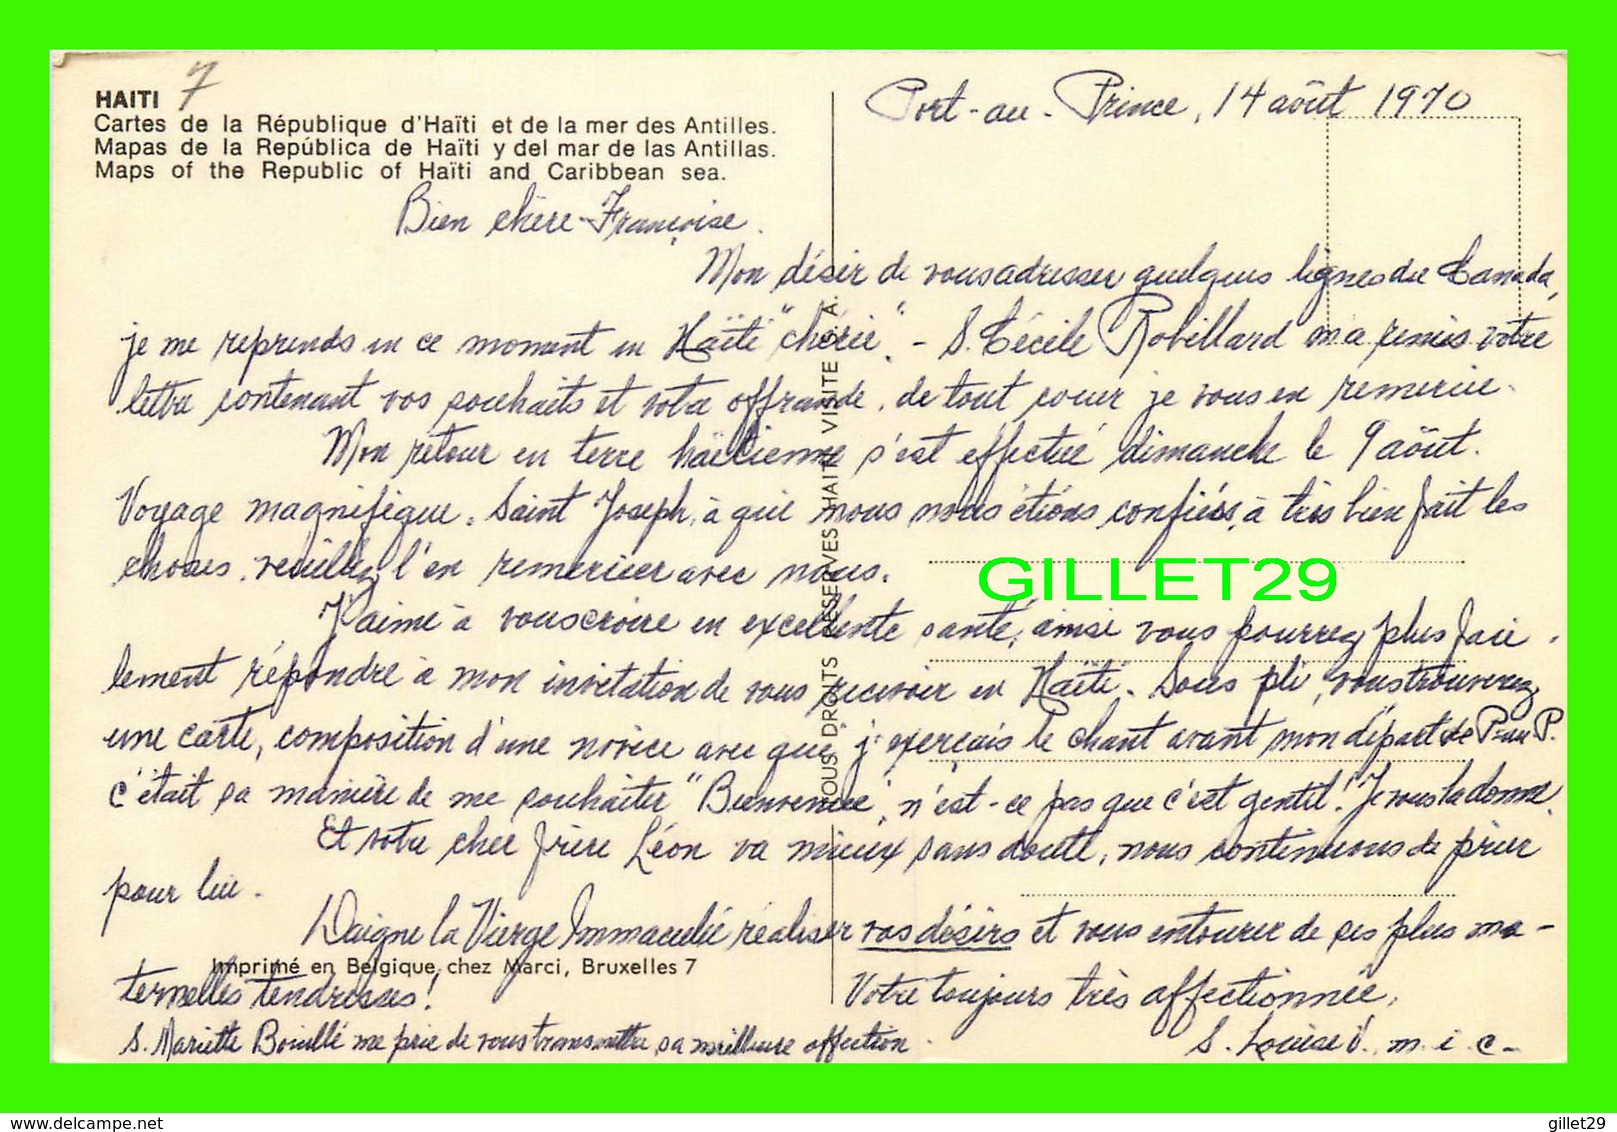 HAITI 7
Cartes de la République d'Haïti et de la mer des Antilles.
Mapas de la República de Haïti y del mar de las Antillas.
Maps of the Republic of Haïti and Caribbean sea.
Port-au-Prince, 14 août 1970
Bien chère Françoise.
Mon désir de vous adresser quelques lignes du Canada,
je me reprends en ce moment en Haïti "chérie". - S. Cécile Robillard m'a remis votre
lettre contenant vos souhaits et votre offrande, de tout coeur je vous en remercie.
Mon retour en terre haïtienne s'est effectué dimanche le 9 août.
Voyage magnifique. Saint Joseph, à qui nous nous étions confiées, a très bien fait les
choses, veuillez l'en remercier avec nous.
J'aime à vous croire en excellente santé, ainsi vous pourrez plus faci-
lement répondre à mon invitation de vous recevoir en Haïti. Sous pli, vous trouverez
une carte, composition d'une novice avec qui j'exerçais le chant avant mon départ de P-au P.
c'était sa manière de me souhaiter "Bienvenue", n'est-ce pas que c'est gentil! Je vous la donne.
Et votre cher frère Léon va mieux sans doute, nous continuons de prier
pour lui.
Daigne la Vierge Immaculée réaliser vos désirs et vous entourer de ses plus ma-
ternelles tendresses!
Imprimé en Belgique, chez Marci, Bruxelles 7
Votre toujours très affectionnée,
S. Mariette Bouillé me prie de vous transmettre sa meilleure affection.
S. Louise m. i. c.
TOUS DROITS RESERVES HAITI VISITE A.
GILLET29
delcampe.net
gillet29